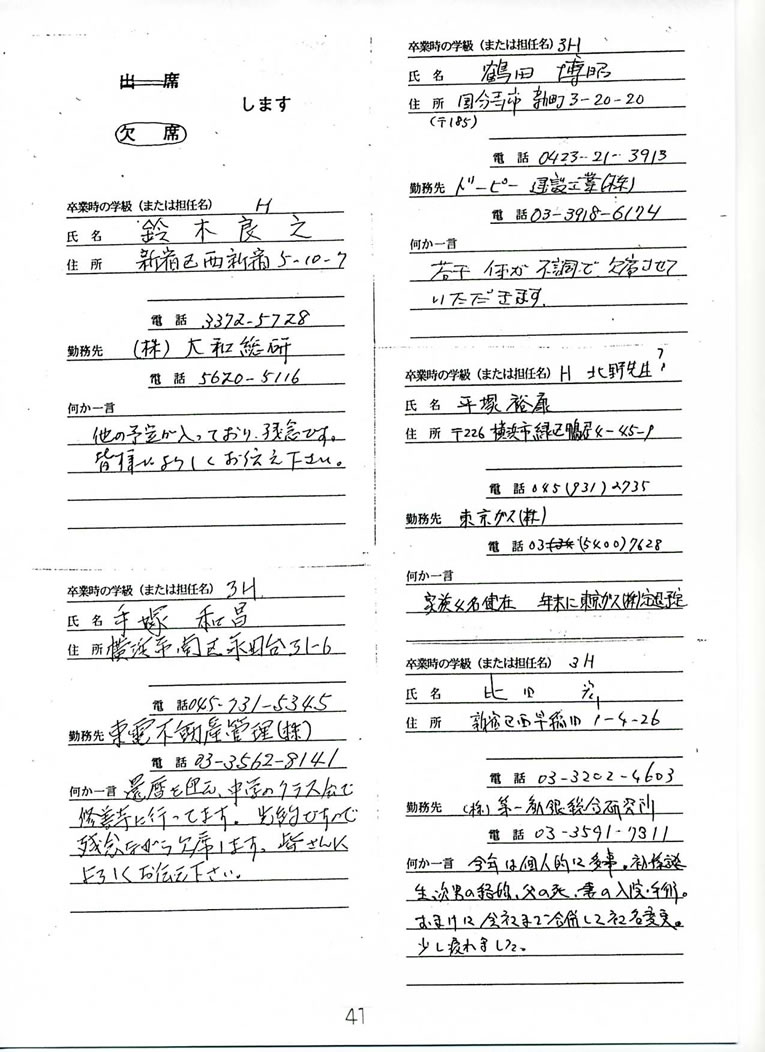 出席
します
欠席
卒業時の学級（または担任名） H
氏 名 鈴木良之
住 所 新宿区西新宿5-10-7
電 話 3372-5728
勤務先 (株)大和総研
電 話 5620-5116
何か一言
他の予定が入っており、残念です。
皆様によろしくお伝え下さい。
卒業時の学級（または担任名） 3H
氏 名 手塚 和昌
住 所 横浜市南区永田台31-6
電 話 045-731-5345
勤務先 東電不動産管理(株)
電 話 03-3562-8141
何か一言 還暦を迎え、中学のクラス会で
修善寺に行ってます。先約ですので
残念ながら欠席します。皆さんに
よろしくお伝え下さい。
卒業時の学級（または担任名） 3H
氏 名 鶴田 博昭
住 所 国分寺市 新町3-20-20
(〒185)
電 話 0423-21-3913
勤務先 ドーピー建設工業(株)
電 話 03-3918-6174
何か一言
若干 体が不調で欠席させて
いただきます.
卒業時の学級（または担任名） H 北野先生?
氏 名 平塚 裕康
住 所 〒226 横浜市緑区鴨居4-45-9
電 話 045(931)2735
勤務先 東京ガス(株)
電 話 03 (5400)7628
何か一言
家族4名健在 年末に東京ガス(株)定退予定
卒業時の学級（または担任名） 3H
氏 名 比田
住 所 新宿区西早稲田1-4-26
電 話 03-3202-4603
勤務先 (株)第一勧銀総合研究所
電 話 03-3591-7311
何か一言 今年は個人的に多事。初孫誕
生、次男の結婚、父の死、妻の入院・手術。
おまけに会社まで合併して社名変更。
少し疲れました。
41